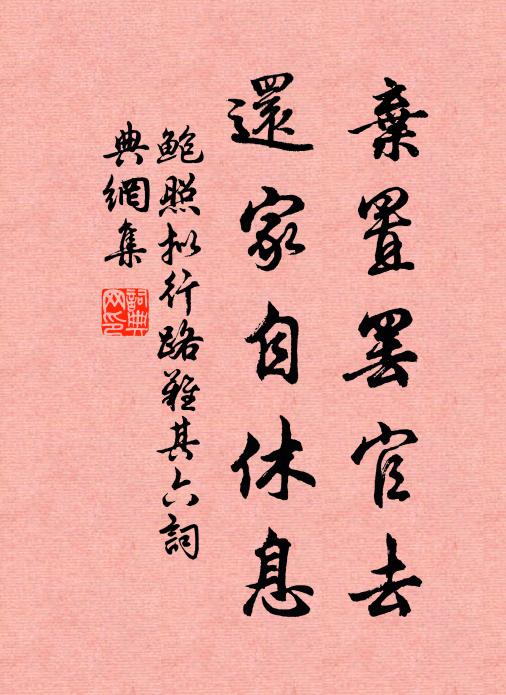 棄置罷官去
還家自休息
鮑照拟行路難其六詞
典網集
詞典
网印